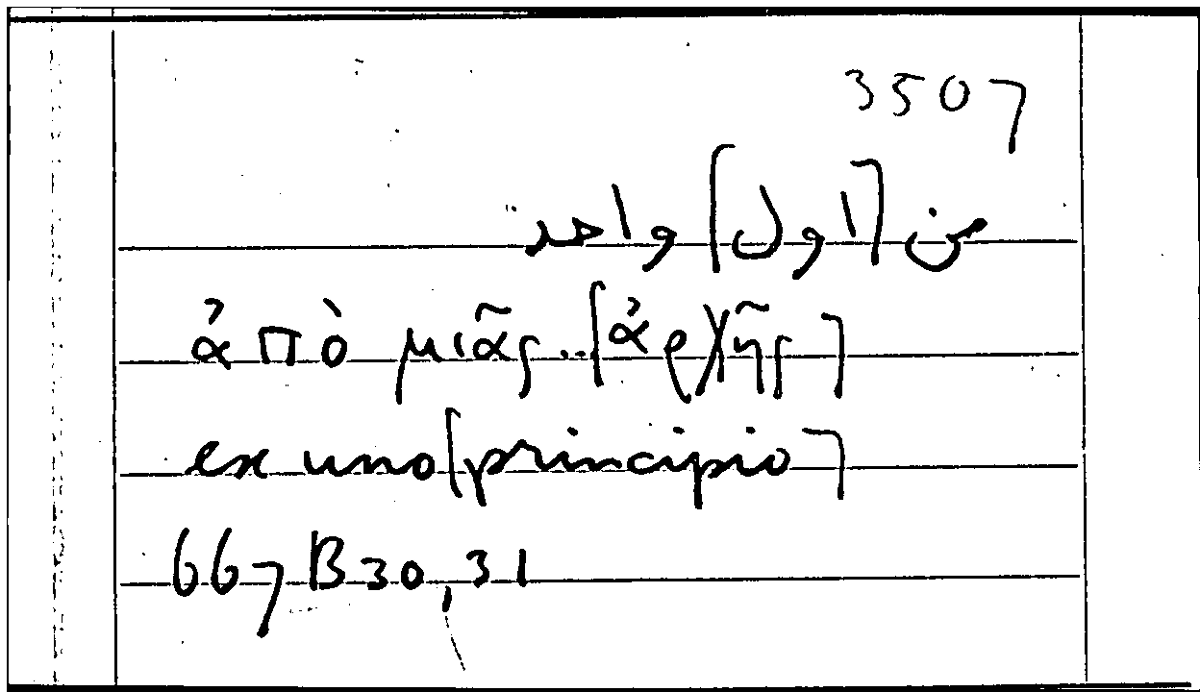 3507
من [اول] واحد
ἀπὸ μιᾶς..[ἀρχῆς]
ex uno[principio]
667B30,31